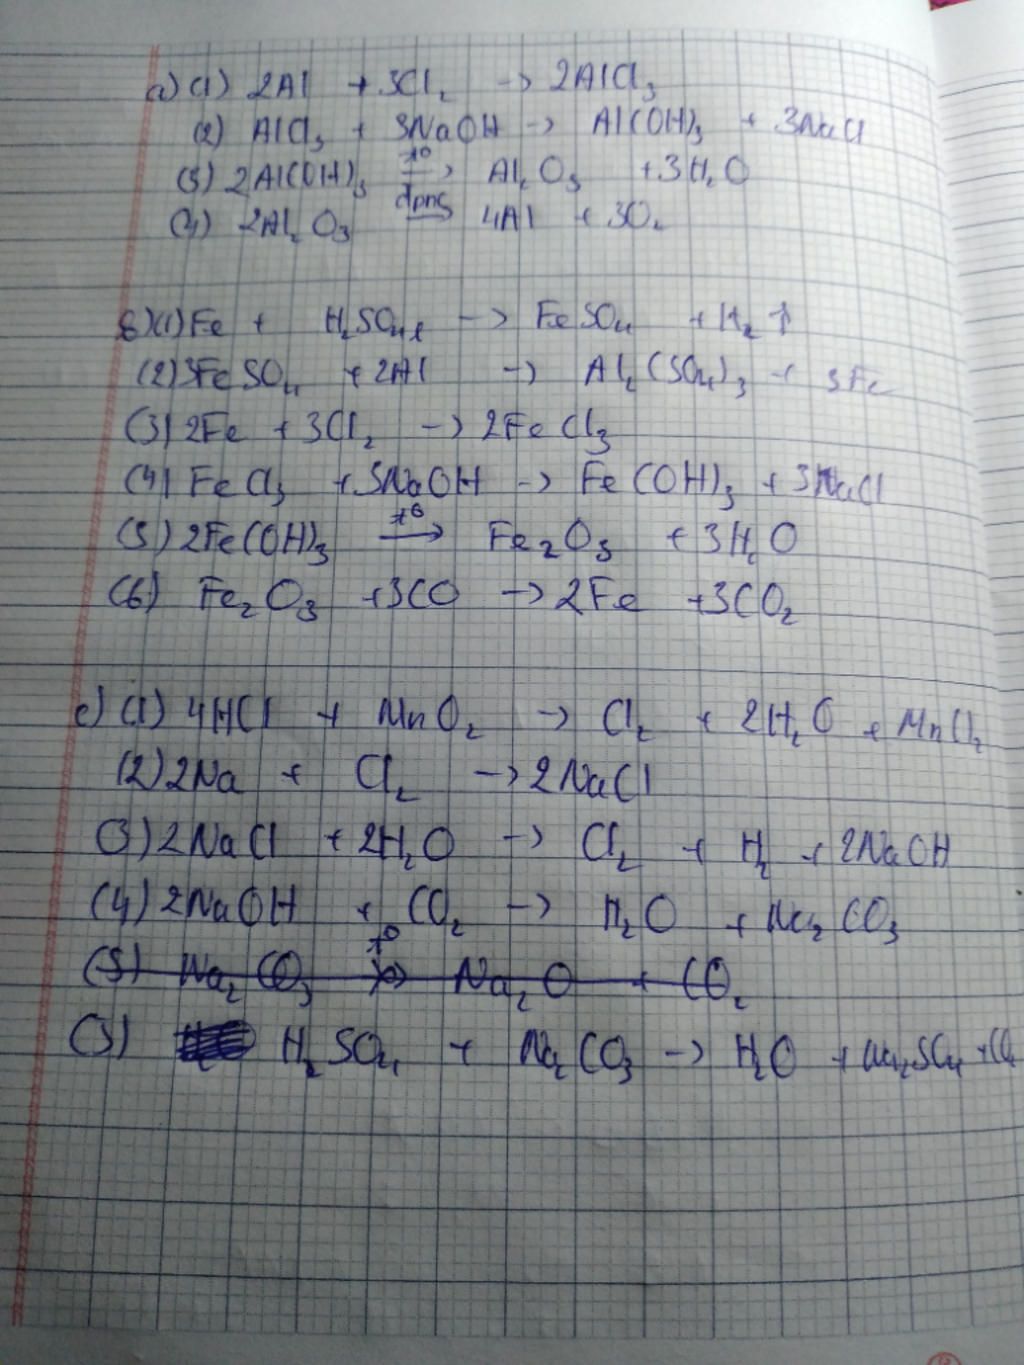 a) (1) 2Al + 3Cl₂ → 2AlCl₃
(2) AlCl₃ + 3NaOH → Al(OH)₃ + 3NaCl
(3) 2Al(OH)₃ t⁰→ Al₂O₃ + 3H₂O
(4) 2Al₂O₃ dpnc→ 4Al + 3O₂
b) (1) Fe + H₂SO₄ₗ → FeSO₄ + H₂ ↑
(2) 3FeSO₄ + 2Al → Al₂(SO₄)₃ + 3Fe
(3) 2Fe + 3Cl₂ → 2FeCl₃
(4) FeCl₃ + 3NaOH → Fe(OH)₃ + 3NaCl
(5) 2Fe(OH)₃ t⁰→ Fe₂O₃ + 3H₂O
(6) Fe₂O₃ + 3CO → 2Fe + 3CO₂
c) (1) 4HCl + MnO₂ → Cl₂ + 2H₂O + MnCl₂
(2) 2Na + Cl₂ → 2NaCl
(3) 2NaCl + 2H₂O → Cl₂ + H₂ + 2NaOH
(4) 2NaOH + CO₂ → H₂O + Na₂CO₃
(5) Na₂CO₃ t⁰→ Na₂O + CO₂
(5) H₂SO₄ + Na₂CO₃ → H₂O + Na₂SO₄ + CO₂